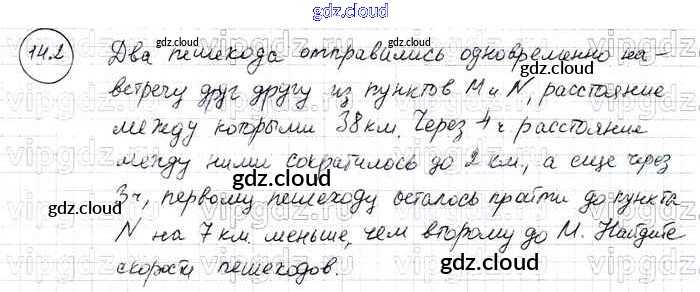 gdz.cloud
14.2 Два пешехода отправились одновременно на-
встречу друг другу из пунктов М и N, расстояние
между которыми 38 км. Через 4 ч расстояние
между ними сократилось до 2 км, а еще через
3 ч, первому пешеходу осталось пройти до пункта
N на 7 км. меньше, чем второму до М. Найдите
скорости пешеходов.
gdz.cloud